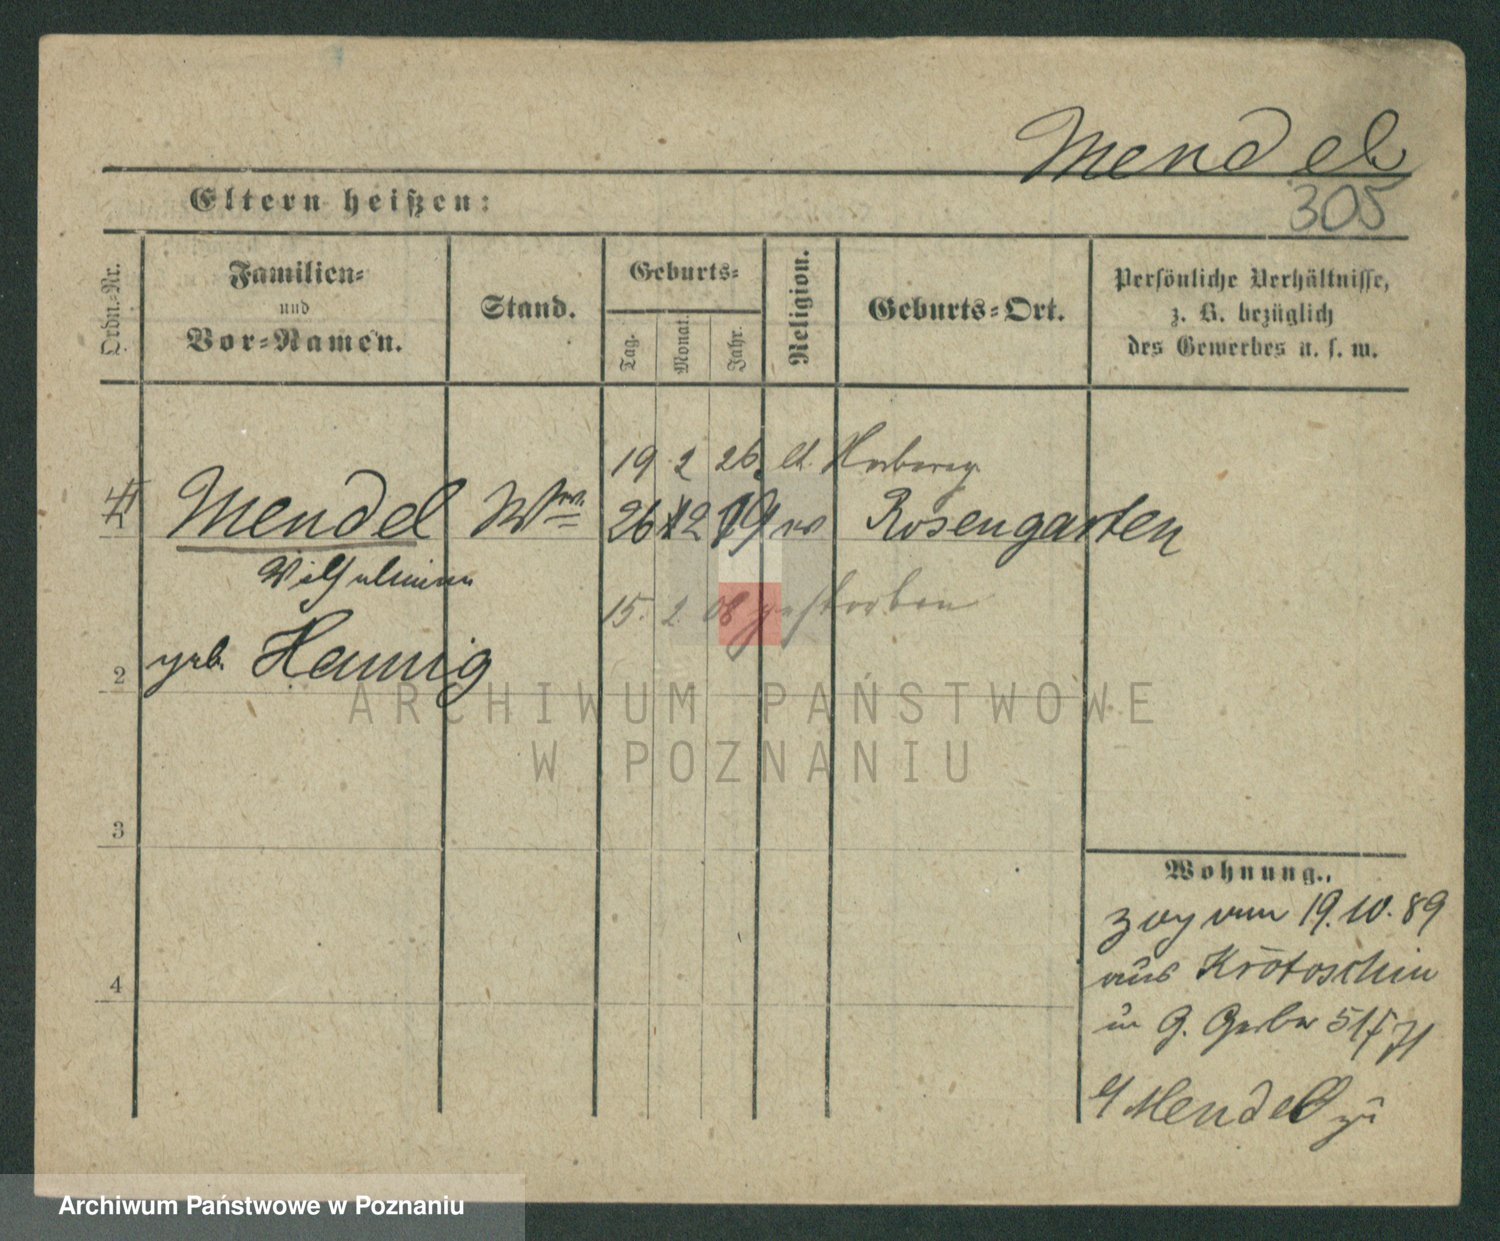 Mendel
305
Eltern heißen:
Ordn.-Nr.
Familien-
und
Vor-Namen.
Stand.
Geburts-
Tag.
Monat.
Jahr.
Religion.
Geburts-Ort.
Persönliche Verhältnisse,
z. B. bezüglich
des Gewerbes u. s. w.
19 2 26
Mendel Wwe 26 12 19 ev Rosengarten
Wilhelmine
15. 2. 08 gestorben
geb. Hannig
2
3
4
Wohnung.
zog vom 19.10.89
aus Krotoschin
in G. Gerber 51
Mendel zu
ARCHIWUM PAŃSTWOWE
W POZNANIU
Archiwum Państwowe w Poznaniu